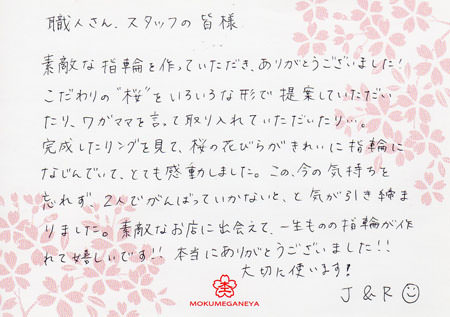 職人さん、スタッフの皆様
素敵な指輪を作っていただき、ありがとうございました!
こだわりの"桜"をいろいろな形で提案していただい
たり、ワガママを言って取り入れていただいたり…。
完成したリングを見て、桜の花びらがきれいに指輪に
なじんでいて、とても感動しました。この、今の気持ちを
忘れず、2人でがんばっていかないと、と気が引き締ま
りました。素敵なお店に出会えて、一生ものの指輪が作
れて嬉しいです!! 本当にありがとうございました!!
大切に使います!
J & R
MOKUMEGANEYA